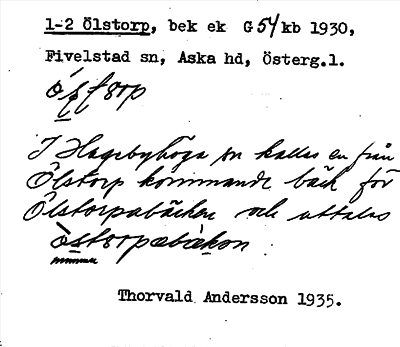 1-2 Ölstorp, bek ek G 54 kb 1930,
Fivelstad sn, Aska hd, Österg.l.
I Hagebyhöga sn kallas en från
Ölstorp kommande bäck för
Ölstorpabäcken och uttalas
Thorvald Andersson 1935.